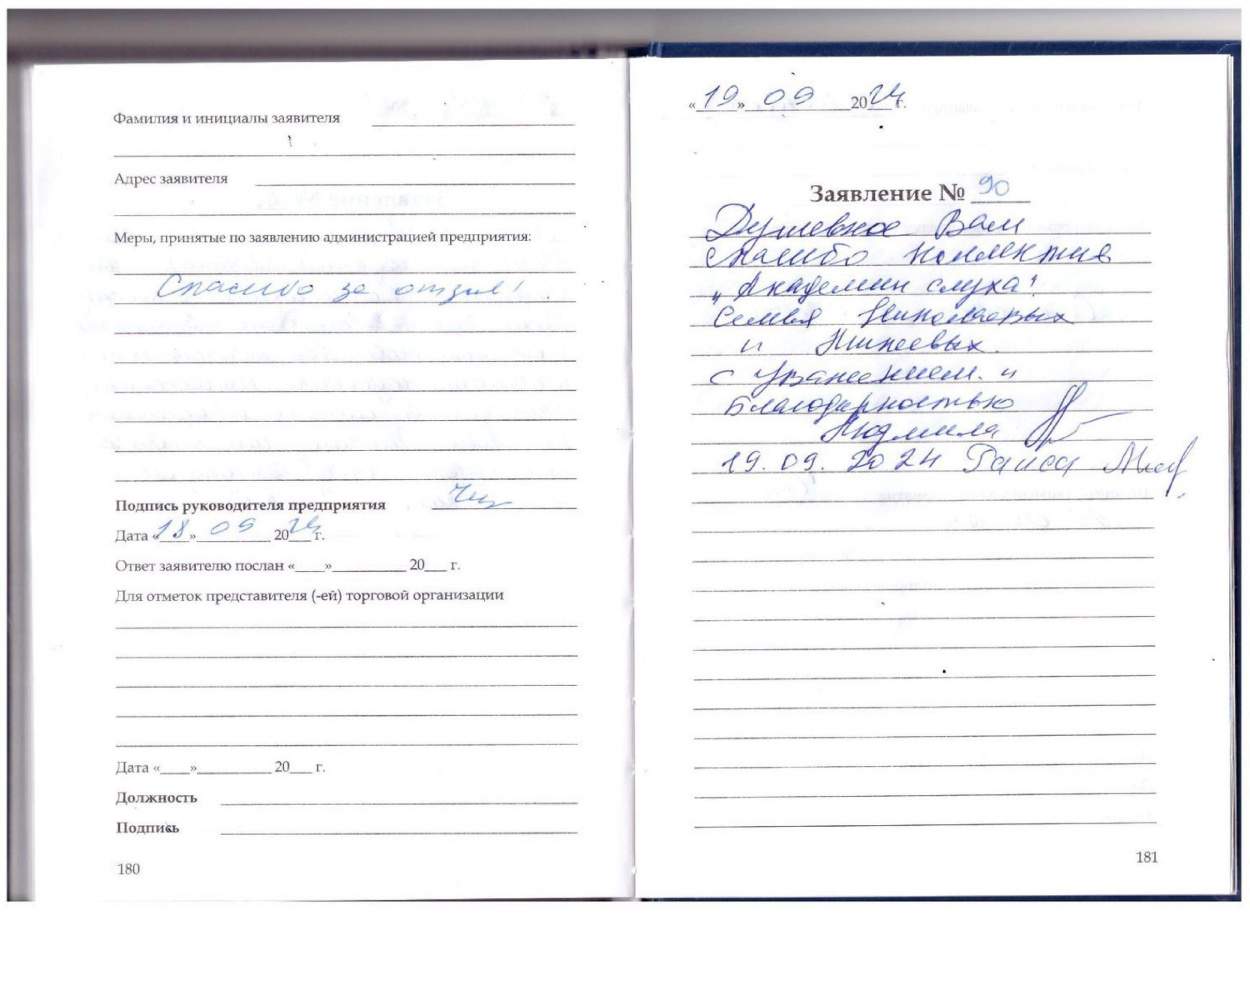 Фамилия и инициалы заявителя
Адрес заявителя
Меры, принятые по заявлению администрацией предприятия:
Спасибо за отзыв!
Подпись руководителя предприятия
Дата «18» 09 2024 г.
Ответ заявителю послан «____»__________ 20___ г.
Для отметок представителя (-ей) торговой организации
Дата «____»__________ 20___ г.
Должность
Подпись
180
«19» 09 2024 г.
Заявление № 90
Душевное Вам
спасибо коллектив
"Академии слуха"!
Семья Николаевых
и
с уважением и
благодарностью
Людмила
19.09.2024 Раиса
181